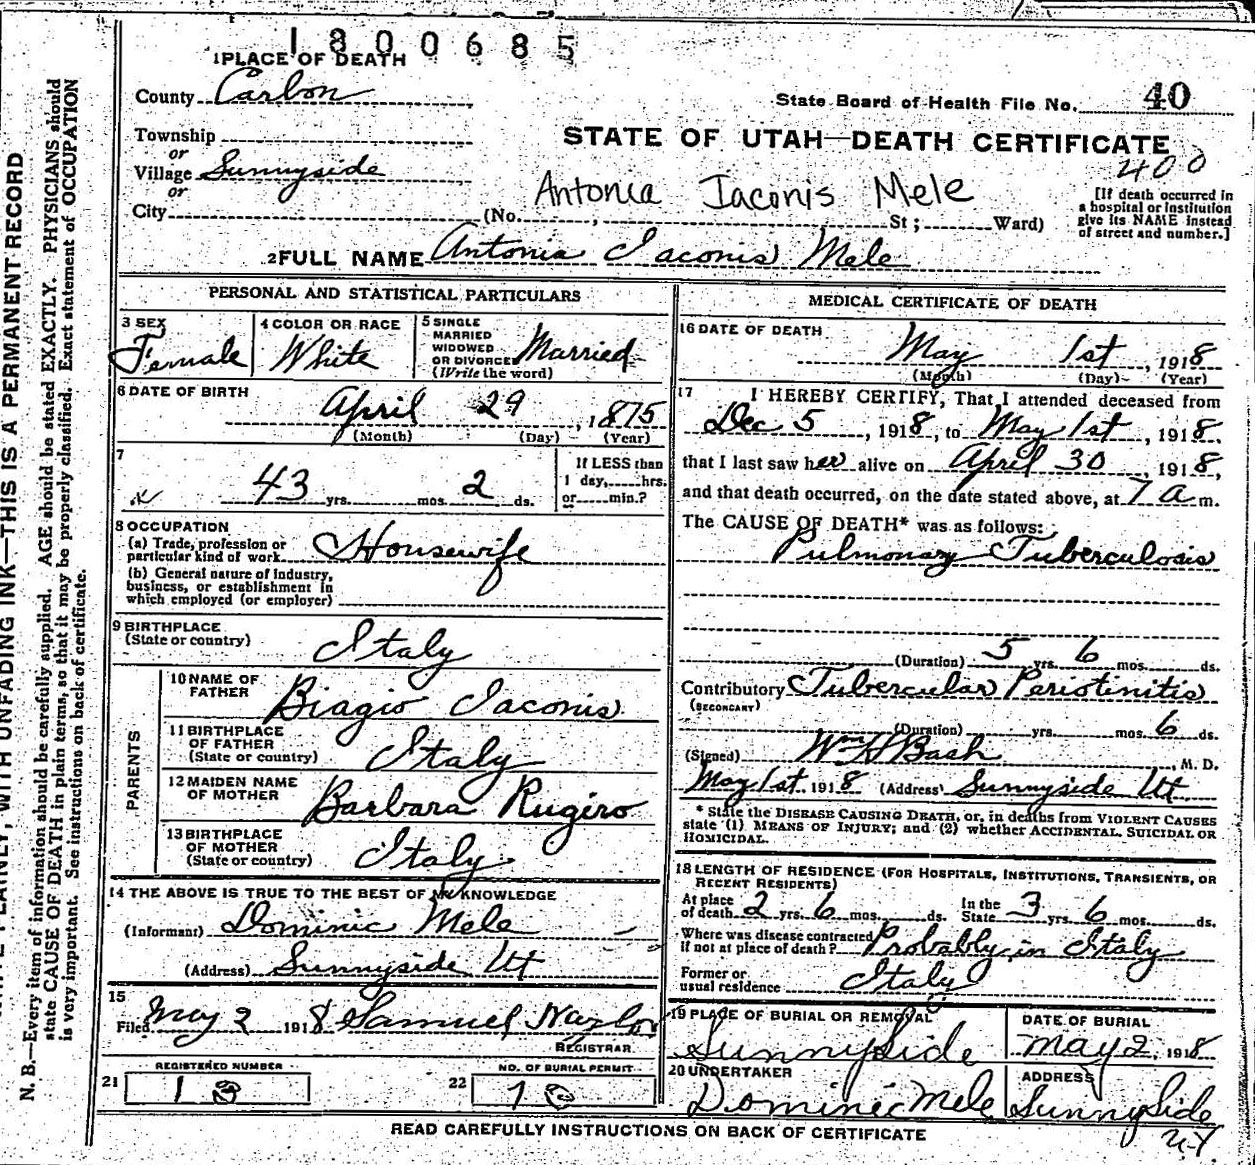 1800685
1 PLACE OF DEATH
County Carbon
State Board of Health File No. 40
Township
or
Village Sunnyside
or
City
STATE OF UTAH—DEATH CERTIFICATE
400
Antonia Iaconis Mele
(No. , St; Ward)
[If death occurred in
a hospital or institution
give its NAME instead
of street and number.]
2 FULL NAME Antonia Iaconis Mele
PERSONAL AND STATISTICAL PARTICULARS
3 SEX
Female
4 COLOR OR RACE
White
5 SINGLE
MARRIED
WIDOWED
OR DIVORCED
(Write the word)
Married
6 DATE OF BIRTH
April 29, 1875
(Month) (Day) (Year)
7
43 yrs. mos. 2 ds.
If LESS than
1 day, hrs.
or min.?
8 OCCUPATION
(a) Trade, profession or
particular kind of work Housewife
(b) General nature of industry,
business, or establishment in
which employed (or employer)
9 BIRTHPLACE
(State or country) Italy
PARENTS
10 NAME OF
FATHER Biagio Iaconis
11 BIRTHPLACE
OF FATHER
(State or country) Italy
12 MAIDEN NAME
OF MOTHER Barbara Rugiro
13 BIRTHPLACE
OF MOTHER
(State or country) Italy
14 THE ABOVE IS TRUE TO THE BEST OF MY KNOWLEDGE
(Informant) Dominic Mele
(Address) Sunnyside Ut
15
Filed May 2 1918 Samuel
REGISTRAR
21 REGISTERED NUMBER
18
22 NO. OF BURIAL PERMIT
MEDICAL CERTIFICATE OF DEATH
16 DATE OF DEATH
May 1st, 1918
(Month) (Day) (Year)
17 I HEREBY CERTIFY, That I attended deceased from
Dec 5, 1918, to May 1st, 1918,
that I last saw her alive on April 30, 1918,
and that death occurred, on the date stated above, at 7 a m.
The CAUSE OF DEATH* was as follows:
Pulmonary Tuberculosis
(Duration) 5 yrs. 6 mos. ds.
Contributory Tubercular Periotinitis
(SECONDARY)
(Duration) yrs. mos. 6 ds.
(Signed) Wm H Bash, M. D.
May 1st 1918 (Address) Sunnyside Ut
* State the DISEASE CAUSING DEATH, or, in deaths from VIOLENT CAUSES
state (1) MEANS OF INJURY; and (2) whether ACCIDENTAL, SUICIDAL OR
HOMICIDAL.
18 LENGTH OF RESIDENCE (FOR HOSPITALS, INSTITUTIONS, TRANSIENTS, OR
RECENT RESIDENTS)
At place
of death 2 yrs. 6 mos. ds.
In the
State 3 yrs. 6 mos. ds.
Where was disease contracted
if not at place of death? Probably in Italy
Former or
usual residence Italy
19 PLACE OF BURIAL OR REMOVAL
Sunnyside
DATE OF BURIAL
May 2, 1918
20 UNDERTAKER
Dominic Mele
ADDRESS
Sunnyside
READ CAREFULLY INSTRUCTIONS ON BACK OF CERTIFICATE
N. B.—Every item of information should be carefully supplied. AGE should be stated EXACTLY. PHYSICIANS should
state CAUSE OF DEATH in plain terms, so that it may be properly classified. Exact statement of OCCUPATION
is very important. See instructions on back of certificate.
PLAINLY, WITH UNFADING INK—THIS IS A PERMANENT RECORD